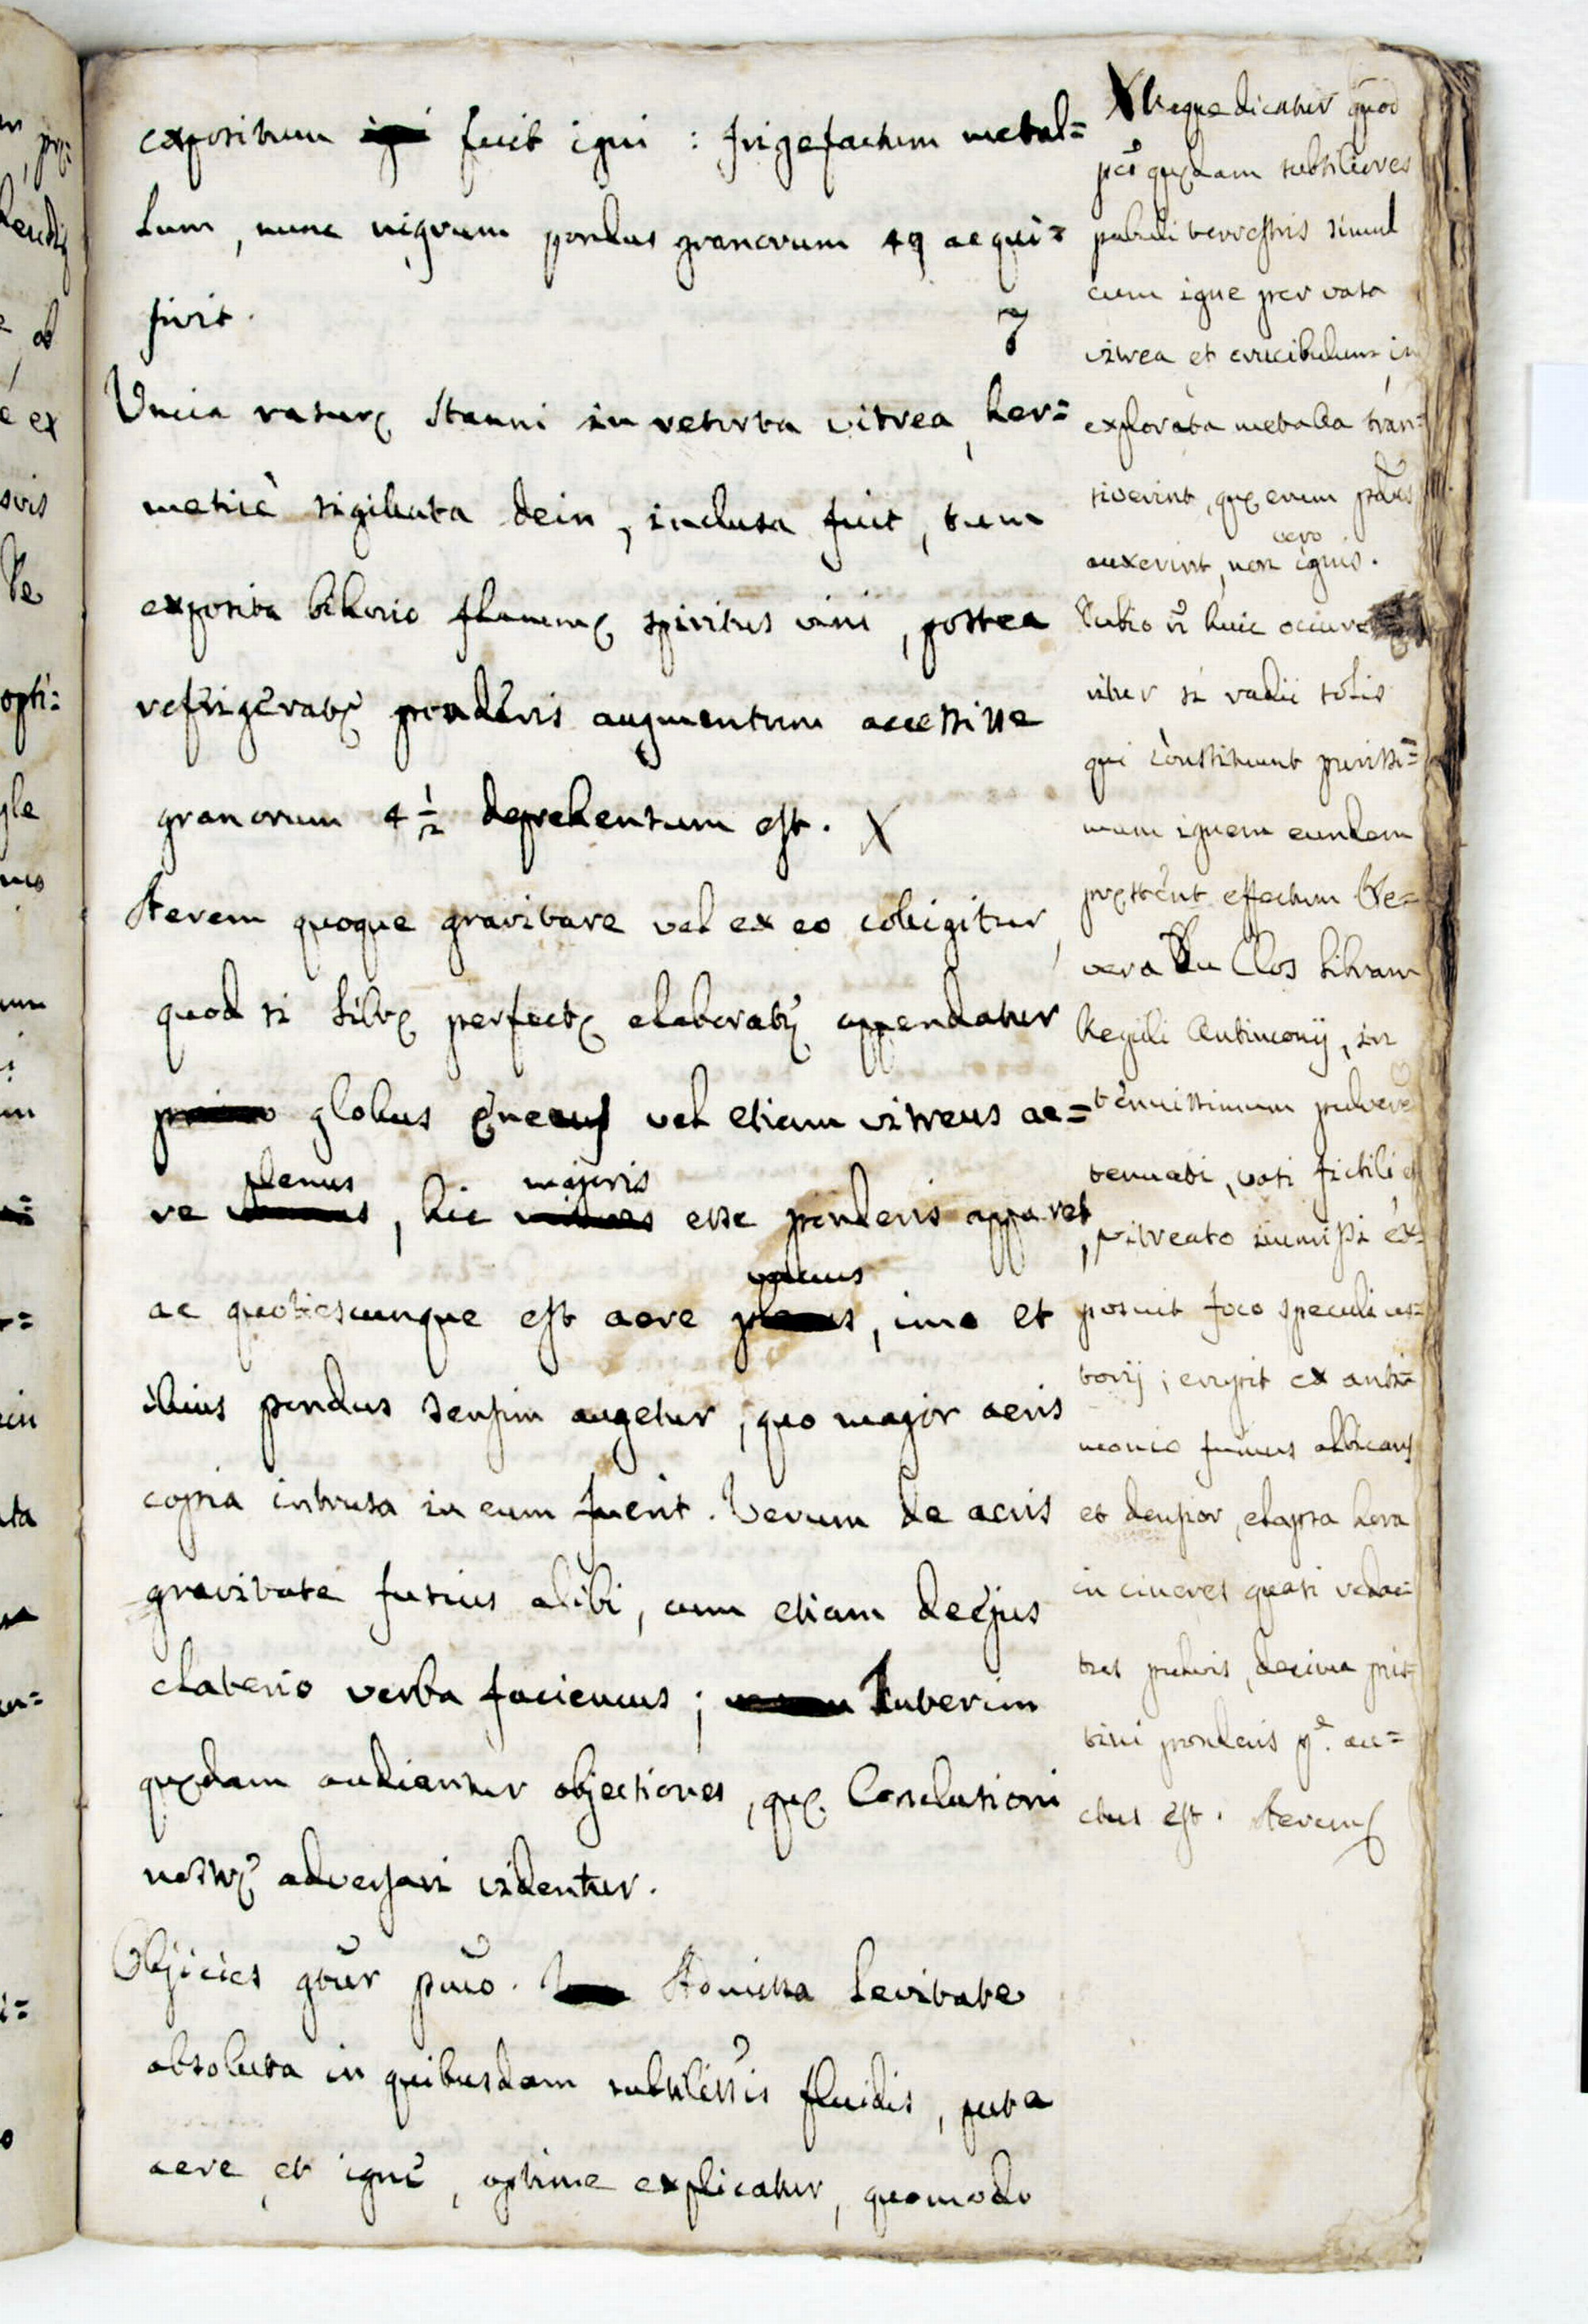 expositum igni fuit igni : frigefactum metal=
lum, nunc nigrum pondus granorum 49 aequi=
sivit.
7
Uncia rasurę stanni in retorta vitrea, her=
meticè sigillata dein, inclusa fuit, tum
exposita bihorio flammę spiritus vini, postea
refrigeratę ponderis augmentum accessisse
granorum 4 1/2 deprehensum est. X
Aerem quoque gravitare vel ex eo colligitur,
quod si librę perfectę elaboratę appendatur
primo globus ęneus vel etiam vitreus ae=
plenus majoris
re , hic esse ponderis apparet
vacuus
ac quotiescunque est aere plenus, imo et
illius pondus sensim augetur, quo major aeris
copia intrusa in eum fuerit. Verum de aeris
gravitate fusius alibi, cum etiam de ejus
elaterio verba faciemus; Interim
quędam audiantur objectiones, quę Conclusioni
nostrę adversari videntur.
Objicies gtur pmo. Admissa levitate
absoluta in quibusdam subtilissis fluidis, puta
aere, et igne, optime explicatur, quomodo
X Neque dicatur quod
pes quędam subtiliores
pabuli terrestris simul
cum igne per vasa
vitrea et crucibulum in
explorata metalla tran=
siverint, quę eorum pdus
vero
auxerint, non ignis.
Dubio n huic occurr
itur si radii solis
qui constituunt purissi=
mum ignem eundem
pręstent effectum Re=
vera Du Clos libram
Reguli Antimonij, in
tenuissimum pulvere
tenuati, vasi fictili et
vitreato immissi ex=
posuit foco speculi us=
torij; erupit ex anti=
monio fumus albicans
et densior, elapsa hora
in cineres quasi redac
tus pulvis, decima pris=
tini ponderis pe. au=
ctus est. Aerem